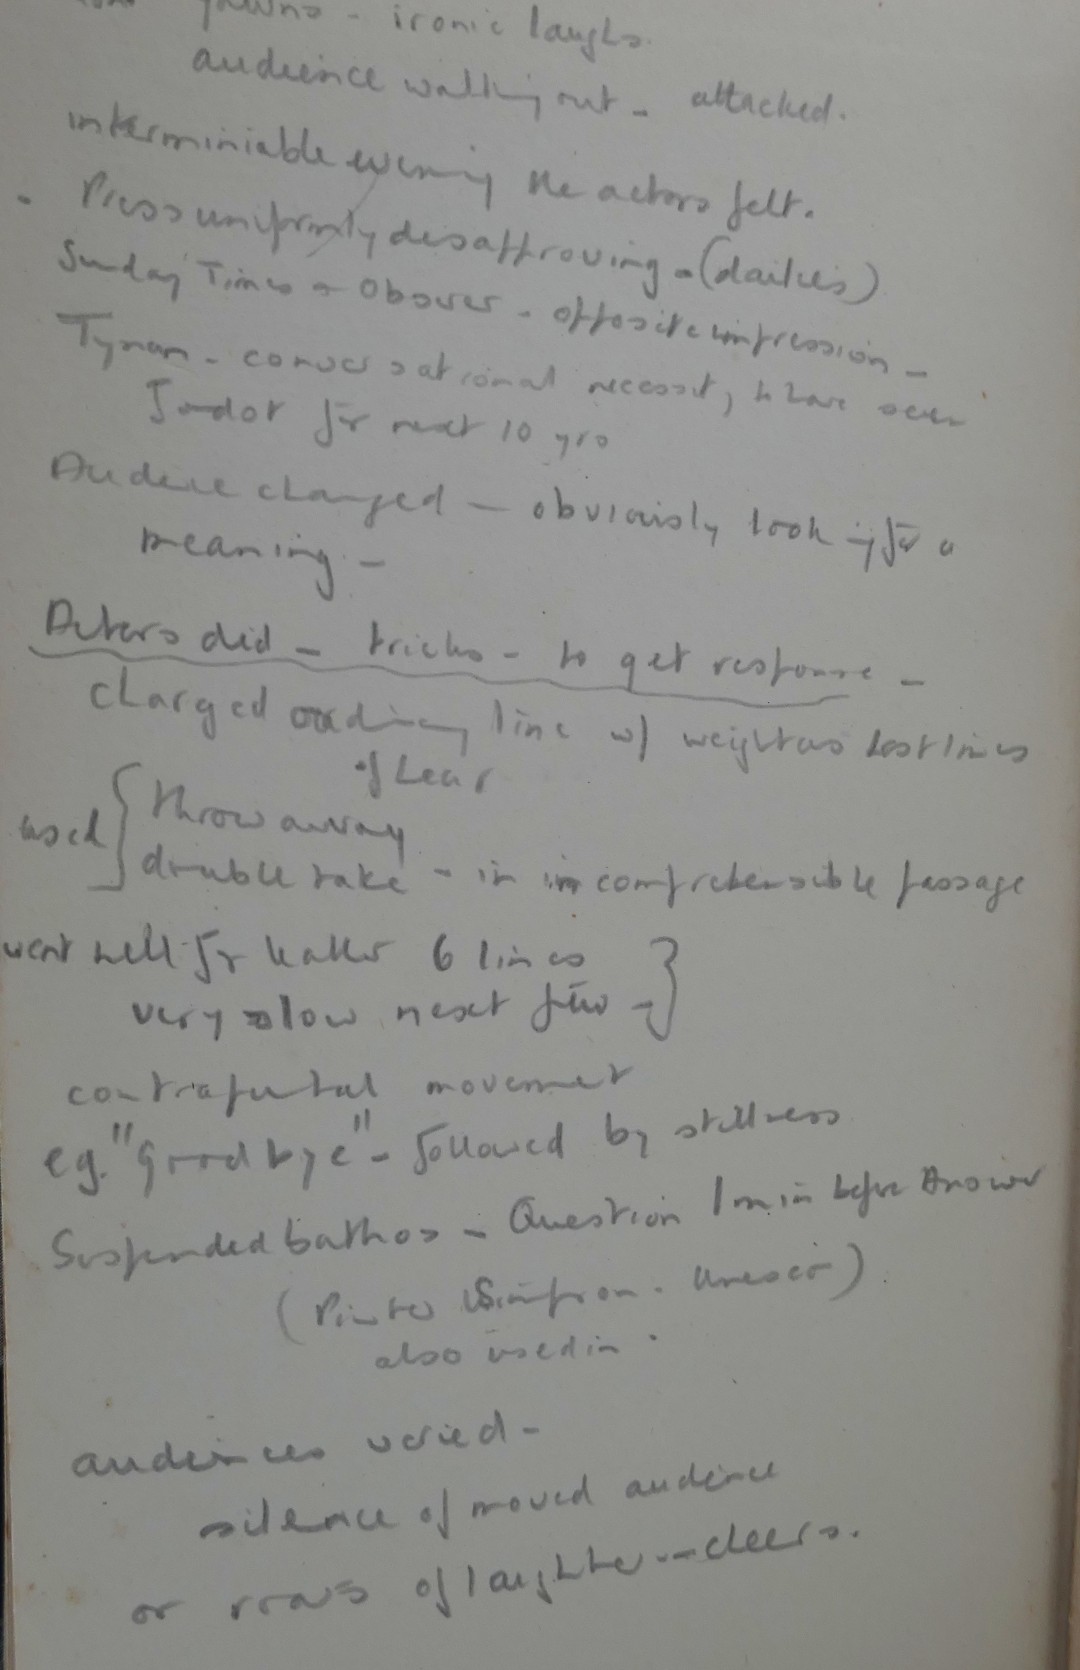 yawns - ironic laughs.
audience walking out - attacked.
interminiable evening the actors felt.
Press uniformly disapproving - (dailies)
Sunday Times + Observer - opposite impression -
Tynan - conversational necessity to have seen
Godot for next 10 yrs
Audience changed - obviously looking for a
meaning -
Actors did - tricks - to get response -
charged ordinary line w/ weight as last lines
of Lear
used { throw away
double take - in incomprehensible passage
went well for 6 lines }
very slow next few -
contrapuntal movement
eg. "Goodbye" - followed by stillness
Suspended bathos - Question 1 min before Answer
(Pinter Simpson. Unesco)
also used in .
audiences varied -
silence of moved audience
or roars of laughter - cheers.